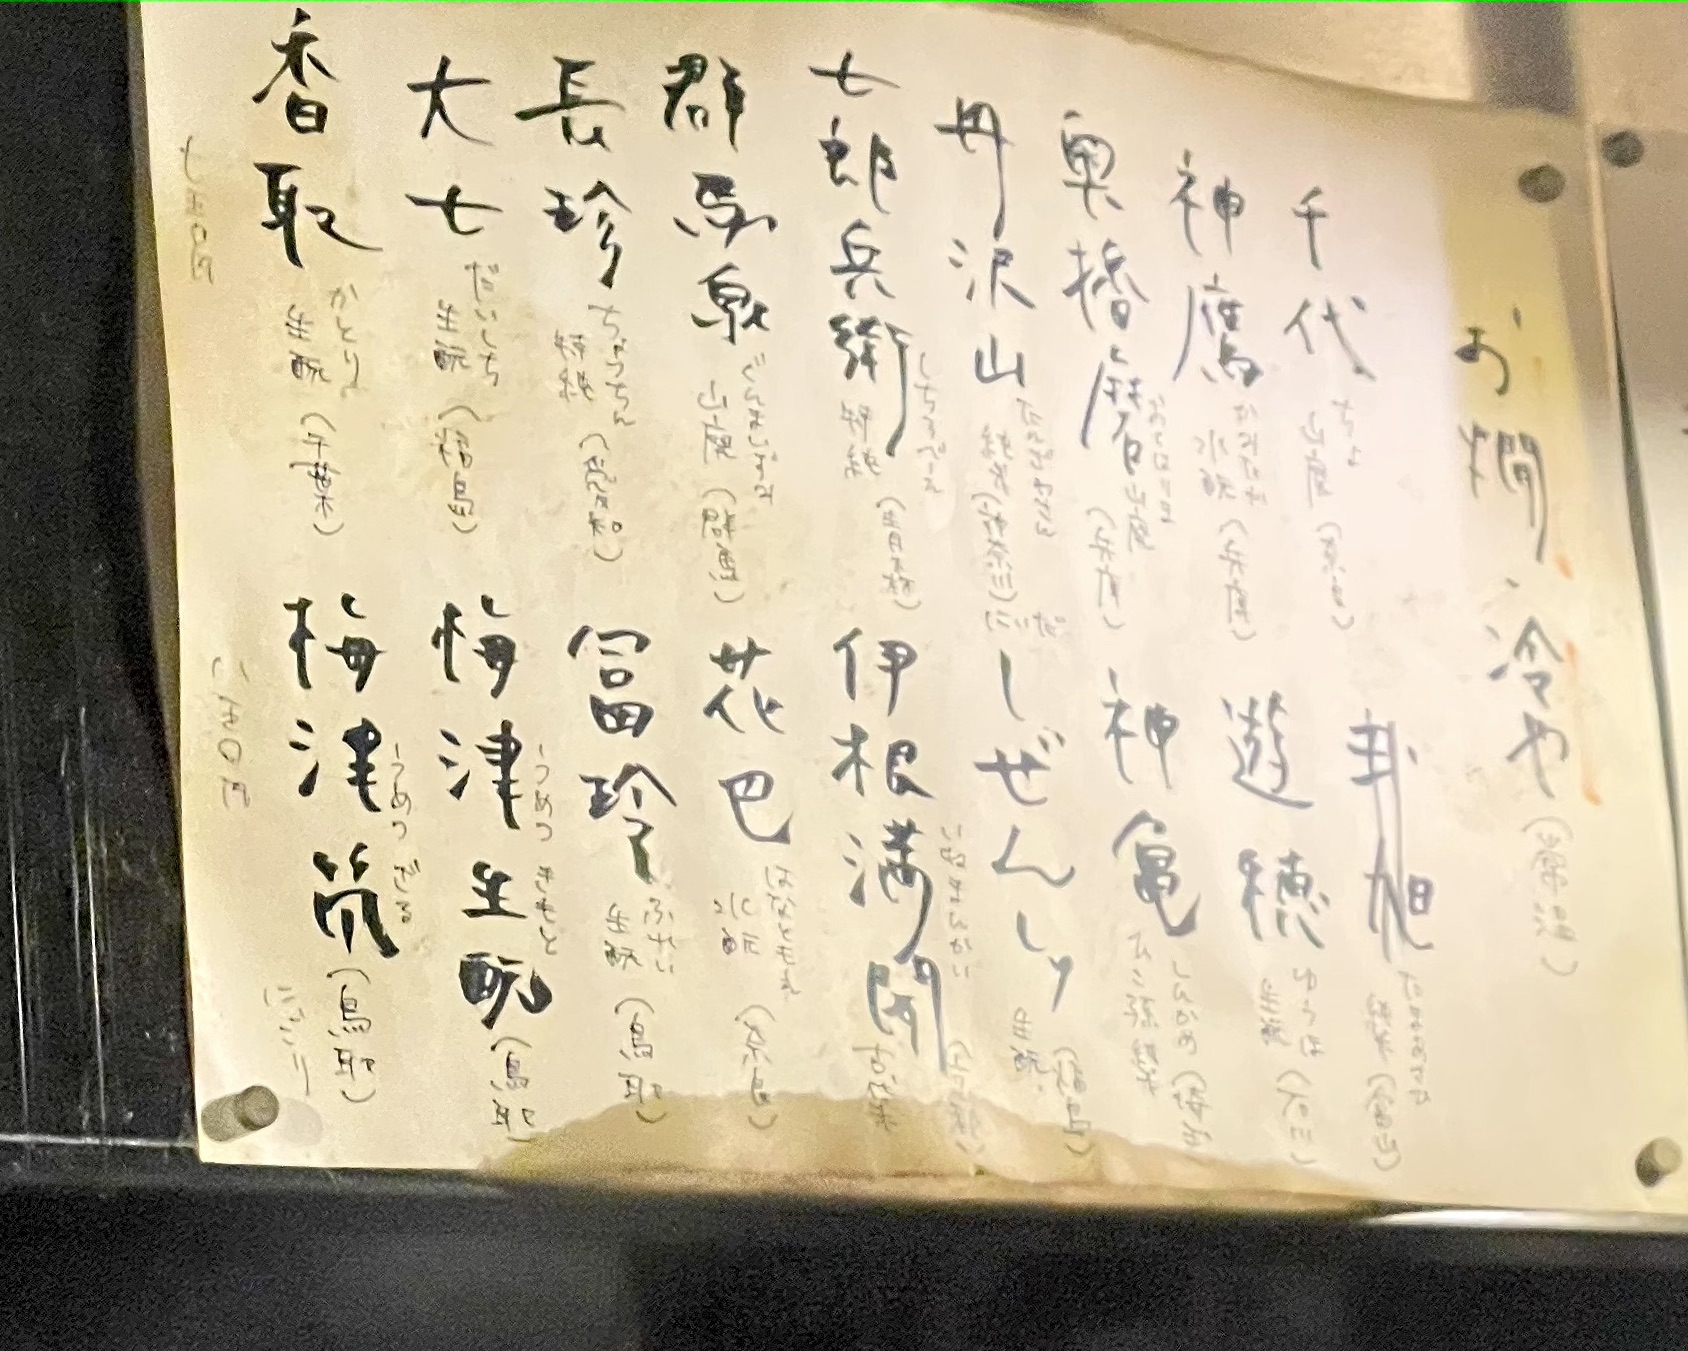 お燗、冷や(常温)
千代 ちよ 山廃
神鷹 かみたか 水酛 (兵庫)
奥播磨 おくはりま 山廃 (兵庫)
丹沢山 たんざわさん 純米 (神奈川)
七郎兵衛 しちろべえ 特純 (青森)
群馬泉 ぐんまいずみ 山廃 (群馬)
長珍 ちょうちん 特純 (愛知)
大七 だいしち 生酛 (福島)
香取 かとり 生酛 (千葉)
旭
遊穂 ゆうほ 生酛 (石川)
神亀 しんかめ (埼玉)
にいだしぜんしゅ 生酛 (福島)
伊根満開 いねまんかい 古代米
花巴 はなともえ 水酛
冨玲 ふれい 生酛 (鳥取)
梅津生酛 うめつきもと (鳥取)
梅津筒 うめつ (鳥取)
にごり